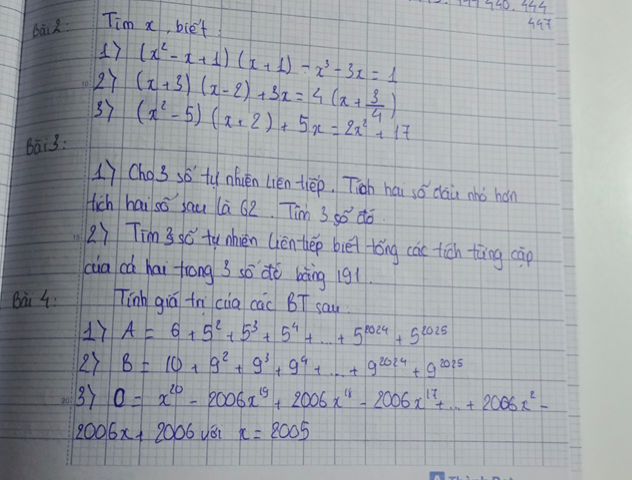 440. 444
447
Bài 2: Tìm x, biết:
1) (x² - x + 1) (x + 1) - x³ - 3x = 1
2) (x + 3) (x - 2) + 3x = 4 (x + 3/4)
3) (x² - 5) (x + 2) + 5x = 2x² + 17
Bài 3:
1) Cho 3 số tự nhiên liên tiếp. Tích hai số đầu nhỏ hơn
tích hai số sau là 62. Tìm 3 số đó.
2) Tìm 3 số tự nhiên liên tiếp biết tổng các tích từng cặp
của cả hai trong 3 số đó bằng 191.
Bài 4: Tính giá trị của các BT sau:
1) A = 6 + 5² + 5³ + 5⁴ + ... + 5²⁰²⁴ + 5²⁰²⁵
2) B = 10 + 9² + 9³ + 9⁴ + ... + 9²⁰²⁴ + 9²⁰²⁵
3) O = x²⁰ - 2006x¹⁹ + 2006x¹⁸ - 2006x¹⁷ + ... + 2006x² -
2006x + 2006 với x = 2005